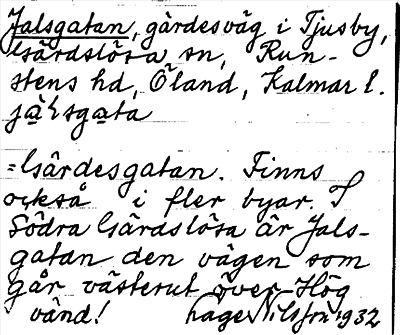 Jalsgatan, gärdesväg i Tjusby,
Gärdslösa sn, Run-
stens hd, Öland, Kalmar l.
jàlsgata
=Gärdesgatan. Finns
också i fler byar. I
Södra Gärdslösa är Jals-
gatan den vägen som
går västerut över Hög
vänd! Hage Nilsson 1932